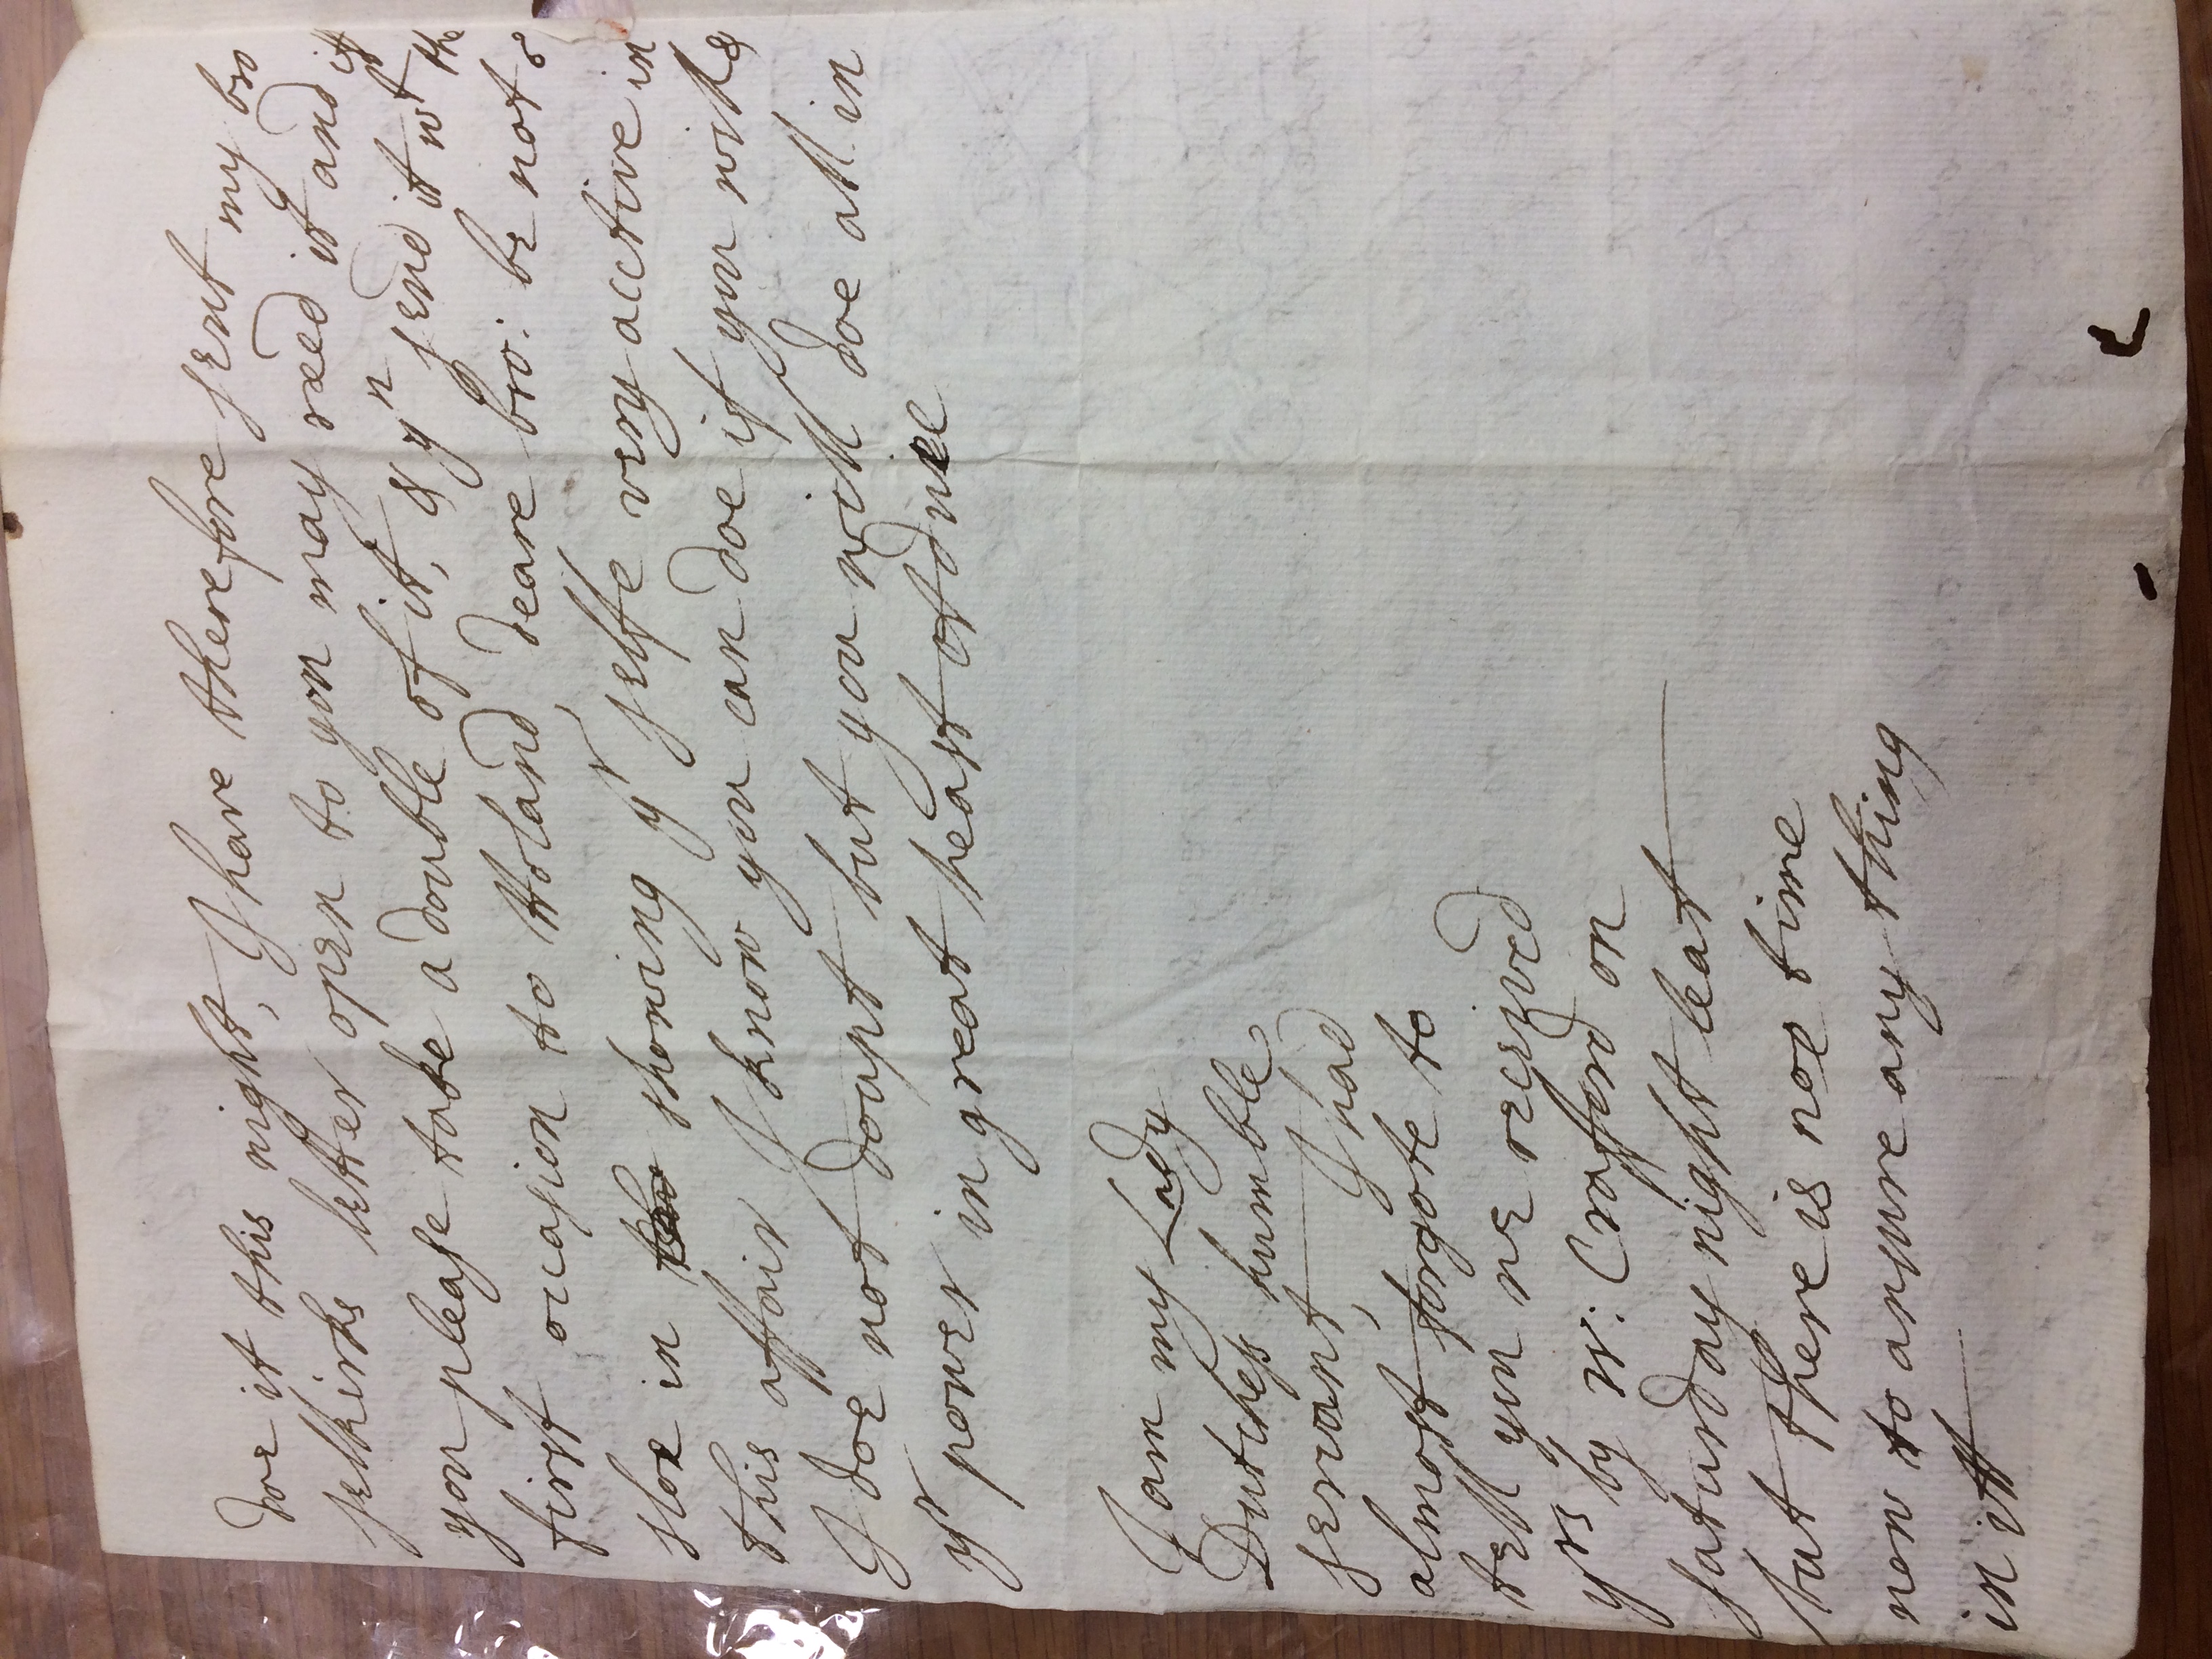 doe it this night, I have therefore sent my bro
selkirks letter open to you may reed it and iff
you please take a double of it, & yn send it wt the
first occasion to Holand, deare bro: be not
sloe in showing yr selfe very acctive in
this affair I know you can doe if you will &
I doe not doupt but you will doe all in
yr power in great heast Adiuee
I am my Lady
Dutchess humble
servant, I had
almost forgote to
tell you we received
yrs by W: Crafferd on
saturday night leat
but there is noe time
now to ansure any thing
in itt